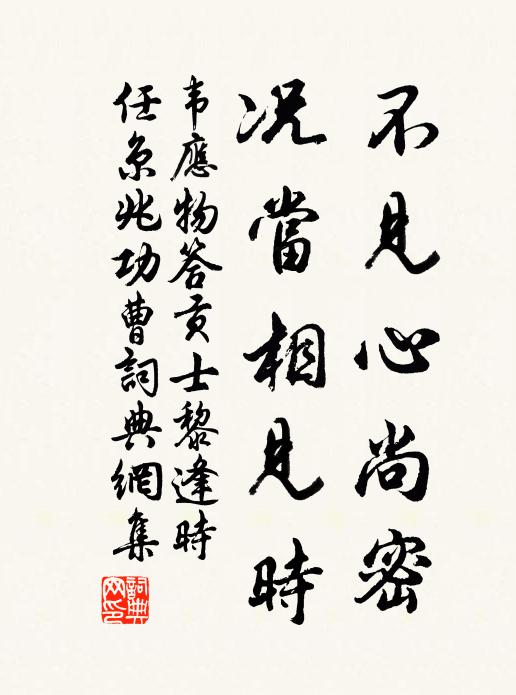 不見心尚密
況當相見時
韦應物答贡士黎逢時
任京兆功曹詞典網集
詞典网印